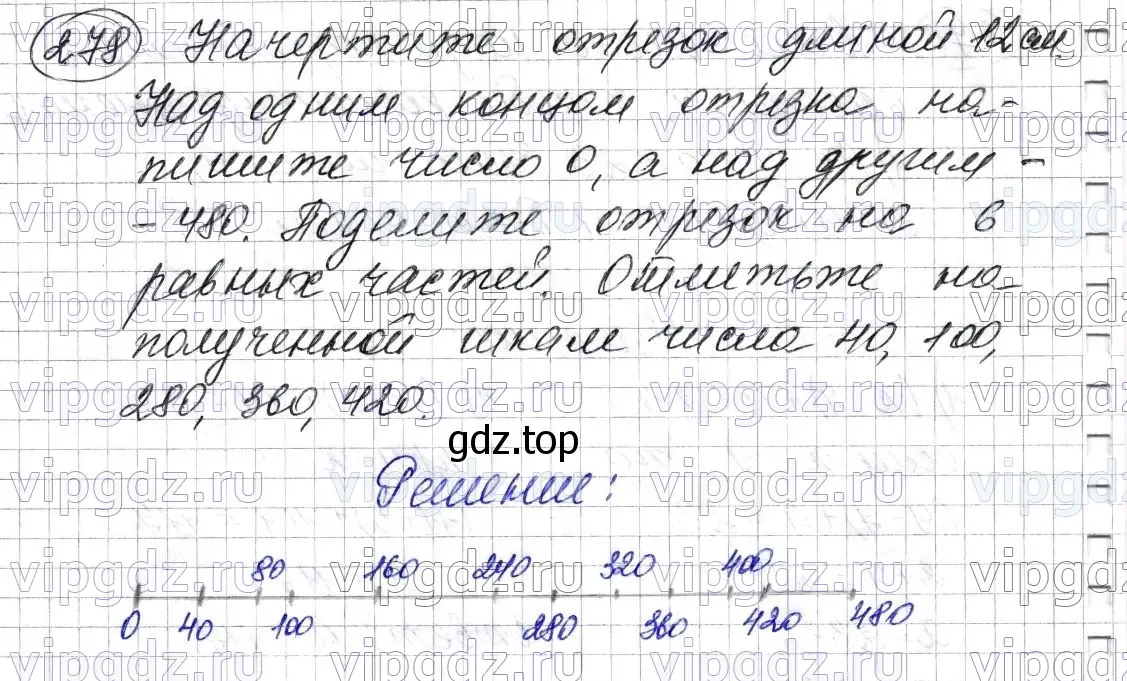 278 Начертите отрезок длиной 12 см.
Над одним концом отрезка на-
пишите число 0, а над другим -
- 480. Поделите отрезок на 6
равных частей. Отметьте на
полученной шкале числа 40, 100,
280, 360, 420.
gdz.top
Решение:
80 160 240 320 400
0 40 100 280 360 420 480